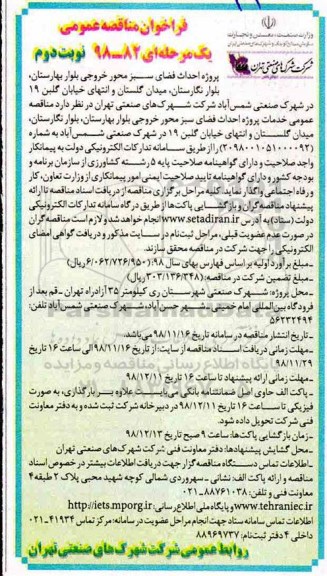 وزارت صنعت، معدن و تجارت
شرکت شهرک‌های صنعتی تهران
فراخوان مناقصه عمومی
یک مرحله‌ای ۸۲-۹۸ نوبت دوم
پروژه احداث فضای سبز محور خروجی بلوار بهارستان،
بلوار نگارستان، میدان گلستان و انتهای خیابان گلبن ۱۹
در شهرک صنعتی شمس‌آباد شرکت شهرک‌های صنعتی تهران در نظر دارد مناقصه
عمومی خدمات پروژه احداث فضای سبز محور خروجی بلوار بهارستان، بلوار نگارستان،
میدان گلستان و انتهای خیابان گلبن ۱۹ در شهرک صنعتی شمس‌آباد به شماره
(۲۰۹۸۰۰۱۰۵۱۰۰۰۰۹۲) را از طریق سامانه تدارکات الکترونیکی دولت به پیمانکار
واجد صلاحیت و دارای گواهینامه صلاحیت پایه ۵ رشته کشاورزی از سازمان برنامه و
بودجه کشور و دارای گواهینامه تایید صلاحیت ایمنی امور پیمانکاری از وزارت تعاون، کار
و رفاه اجتماعی واگذار نماید. کلیه مراحل برگزاری مناقصه از دریافت اسناد مناقصه تا ارائه
پیشنهاد مناقصه‌گران و بازگشایی پاکت‌ها از طریق درگاه سامانه تدارکات الکترونیکی
دولت (ستاد) به آدرس www.setadiran.ir انجام خواهد شد و لازم است مناقصه‌گران
در صورت عدم عضویت قبلی، مراحل ثبت‌نام در سایت مذکور و دریافت گواهی امضای
الکترونیکی را جهت شرکت در مناقصه محقق سازند.
-مبلغ برآورد اولیه بر اساس فهارس بهای سال ۹۸: (۶/۰۶۲/۷۲۶/۹۵۰ ریال)
-مبلغ تضمین شرکت در مناقصه: (۳۰۳/۱۳۶/۳۴۸ ریال)
-محل پروژه: شهرک صنعتی شهرستان ری کیلومتر ۳۵ آزادراه تهران - قم بعد از
فرودگاه بین‌المللی امام خمینی شهر حسن‌آباد شهرک صنعتی شمس‌آباد تلفن:
۵۶۲۳۲۴۹۴
-تاریخ انتشار مناقصه در سامانه تاریخ ۹۸/۱۱/۱۶ می‌باشد.
-مهلت زمانی دریافت اسناد مناقصه از سایت: از تاریخ ۹۸/۱۱/۱۶ الی ساعت ۱۶ تاریخ
۹۸/۱۱/۲۹
-مهلت زمانی ارائه پیشنهاد تا ساعت ۱۶ تاریخ ۹۸/۱۲/۱۱
-پاکت الف حاوی اصل ضمانتنامه بانکی می‌بایست علاوه بر بارگذاری، به صورت
فیزیکی تا ساعت ۱۶ تاریخ ۹۸/۱۲/۱۱ در دبیرخانه شرکت ثبت شده و به دفتر معاونت
فنی شرکت تحویل داده شود.
-زمان بازگشایی پاکت‌ها: ساعت ۹ صبح تاریخ ۹۸/۱۲/۱۳
-محل گشایش پیشنهادها: دفتر معاونت فنی شرکت شهرک‌های صنعتی تهران
-اطلاعات تماس دستگاه مناقصه‌گزار جهت دریافت اطلاعات بیشتر در خصوص اسناد
مناقصه و ارائه پاکت الف: نشانی - سهروردی شمالی کوچه شهید محبی پلاک ۲ طبقه ۴
معاونت فنی و تلفن: ۸۸۷۶۱۰۳۸-۰۲۱
www.tehraniec.ir و پایگاه ملی اطلاع رسانی: http://iets.mporg.ir
اطلاعات تماس سامانه ستاد جهت انجام مراحل عضویت در سامانه: مرکز تماس ۴۱۹۳۴-۰۲۱
داخلی ۴ دفتر ثبت‌نام: ۸۸۹۶۹۷۳۷
روابط عمومی شرکت شهرک‌های صنعتی تهران